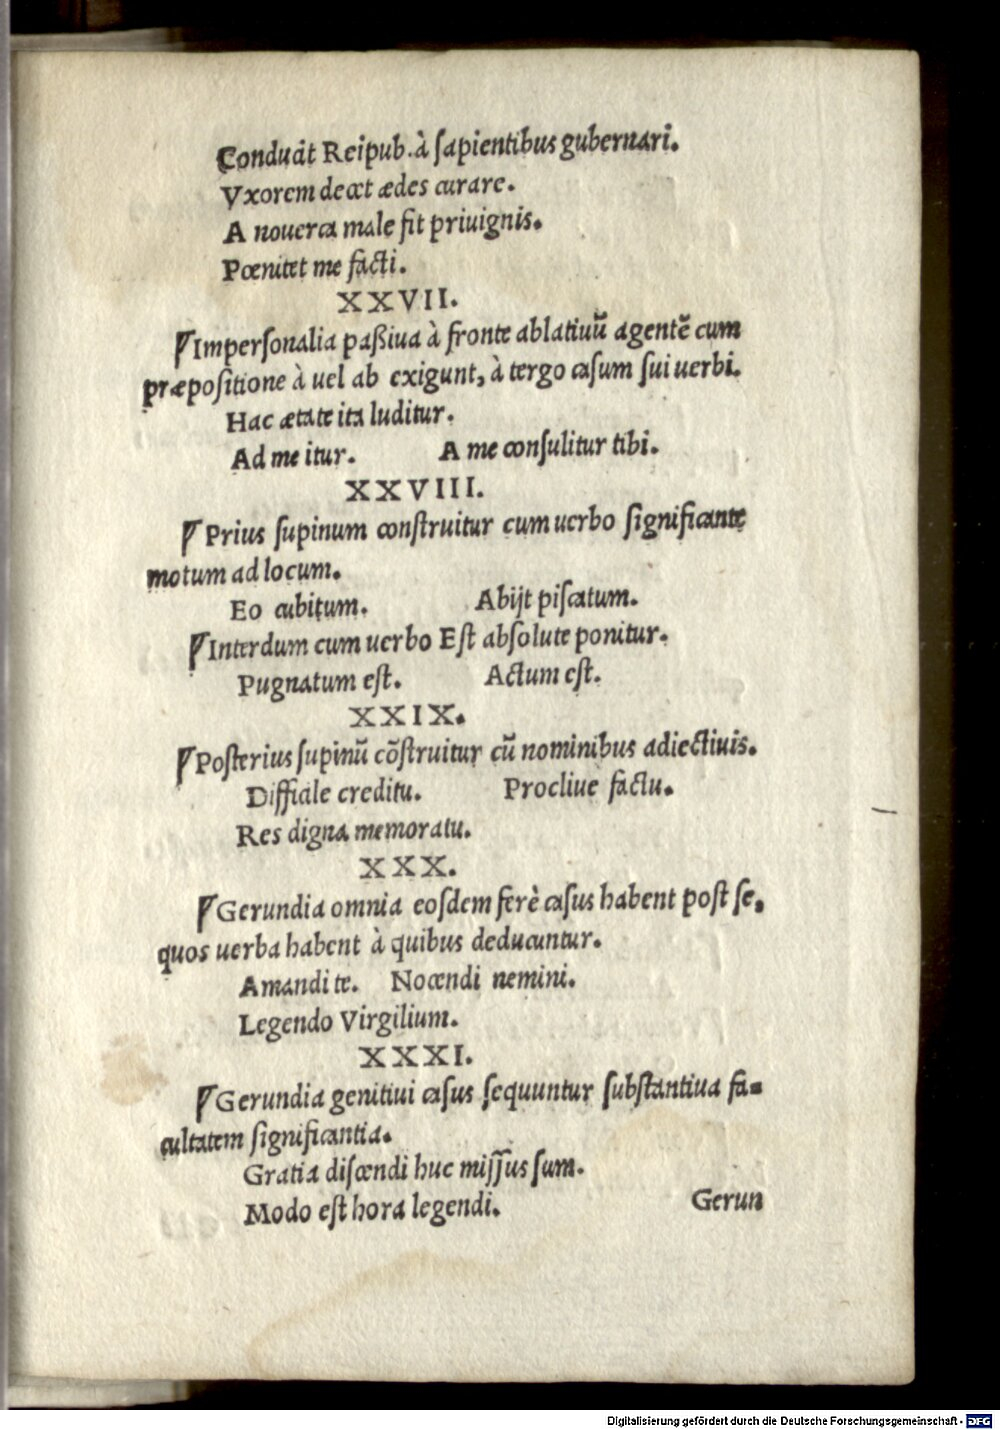 Conducit Reipub. à ſapientibus gubernari.
Vxorem decet ædes curare.
A nouerca male fit priuignis.
Pœnitet me facti.
XXVII.
Imperſonalia paßiua à fronte ablatiuū agentē cum
præpoſitione à uel ab exigunt, à tergo caſum ſui uerbi.
Hac ætate ita luditur.
Ad me itur. A me conſulitur tibi.
XXVIII.
Prius ſupinum conſtruitur cum uerbo ſignificante
motum ad locum.
Eo cubitum. Abijt piſcatum.
Interdum cum uerbo Eſt abſolute ponitur.
Pugnatum eſt. Actum eſt.
XXIX.
Poſterius ſupinū cōſtruitur cū nominibus adiectiuis.
Difficile creditu. Procliue factu.
Res digna memoratu.
XXX.
Gerundia omnia eoſdem ferè caſus habent poſt ſe,
quos uerba habent à quibus deducuntur.
Amandi te. Nocendi nemini.
Legendo Virgilium.
XXXI.
Gerundia genitiui caſus ſequuntur ſubſtantiua fa-
cultatem ſignificantia.
Gratia diſcendi huc miſſus ſum.
Modo eſt hora legendi. Gerun
Digitalisierung gefördert durch die Deutsche Forschungsgemeinschaft - DFG